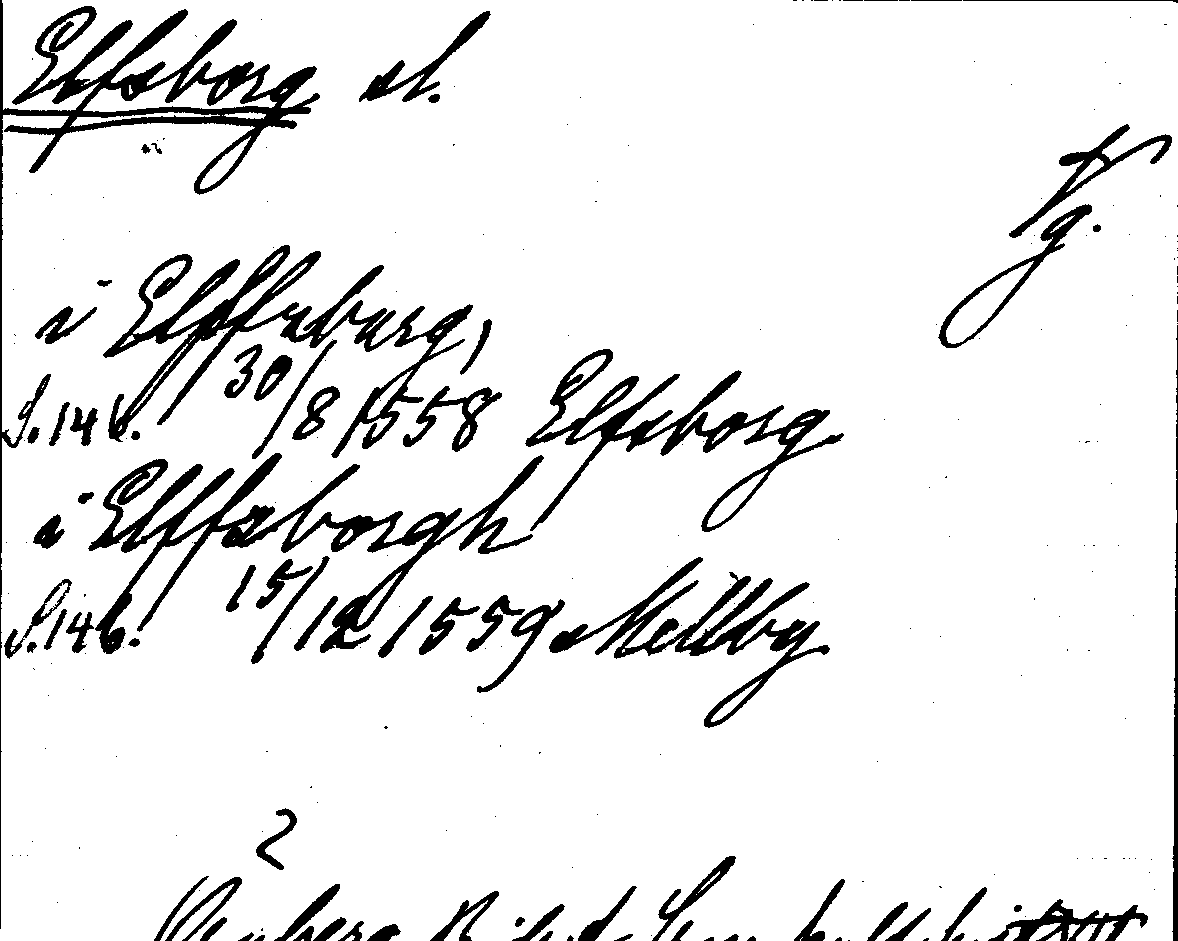 Elfsborg sl.
Vg.
i Elffzburg,
S. 146. 30/8 1558 Elfsborg.
i Elffzborgh
S. 146. 15/12 1559 Mellby.
2